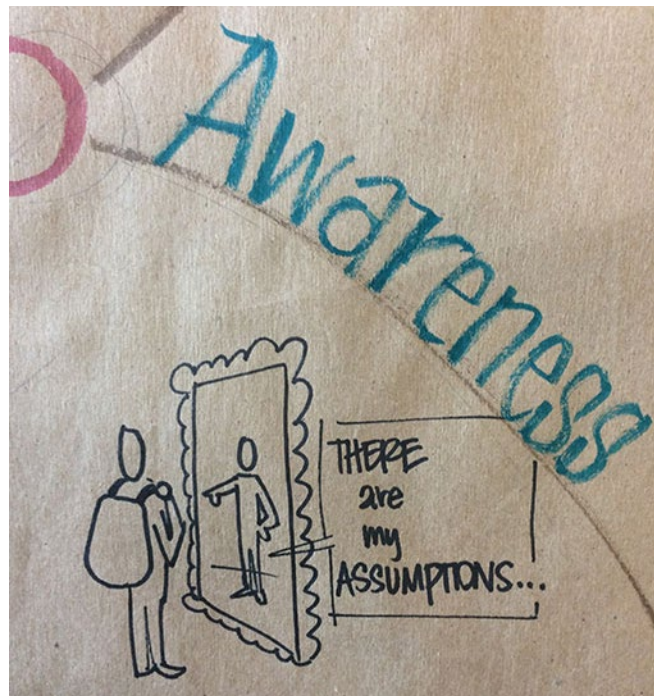 Awareness
THERE
are
my
ASSUMPTIONS...